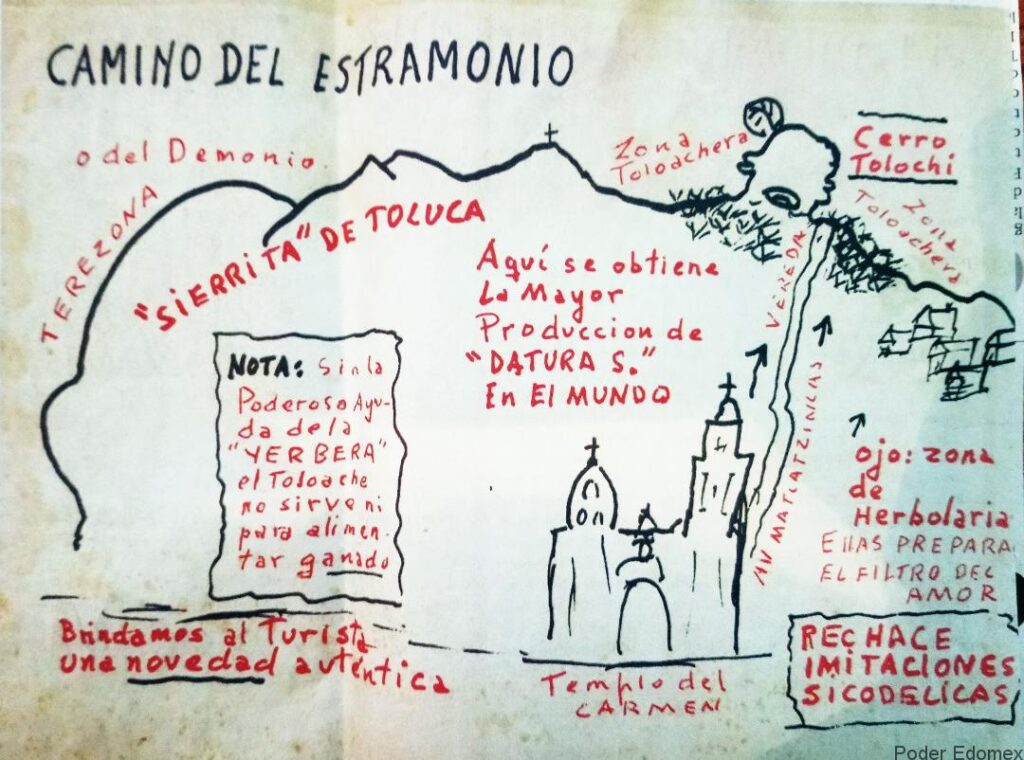 CAMINO DEL ESTRAMONIO
o del Demonio.
TEREZONA
"SIERRITA" DE TOLUCA
Zona
Toloachera
Cerro
Tolochi
Zona
Toloachera
Aquí se obtiene
La Mayor
Produccion de
"DATURA S."
En El MUNDO
VEREDA
NOTA: Sin la
Poderosa Ayu-
da de la
"YERBERA"
el Toloache
no sirve ni
para alimen-
tar ganado
MATLATZINCAS
ojo: zona
de
Herbolaria
EllAS PREPARA
EL FILTRO DEL
AMOR
Brindamos al Turista
una novedad auténtica
Templo del
CARMEN
RECHACE
IMITACIONES
SICODELICAS
Poder Edomex